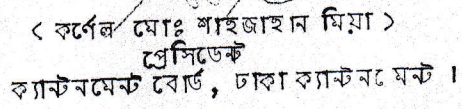 ( কর্নেল মোঃ শাহজাহান মিয়া )
প্রেসিডেন্ট
ক্যান্টনমেন্ট বোর্ড, ঢাকা ক্যান্টনমেন্ট ।